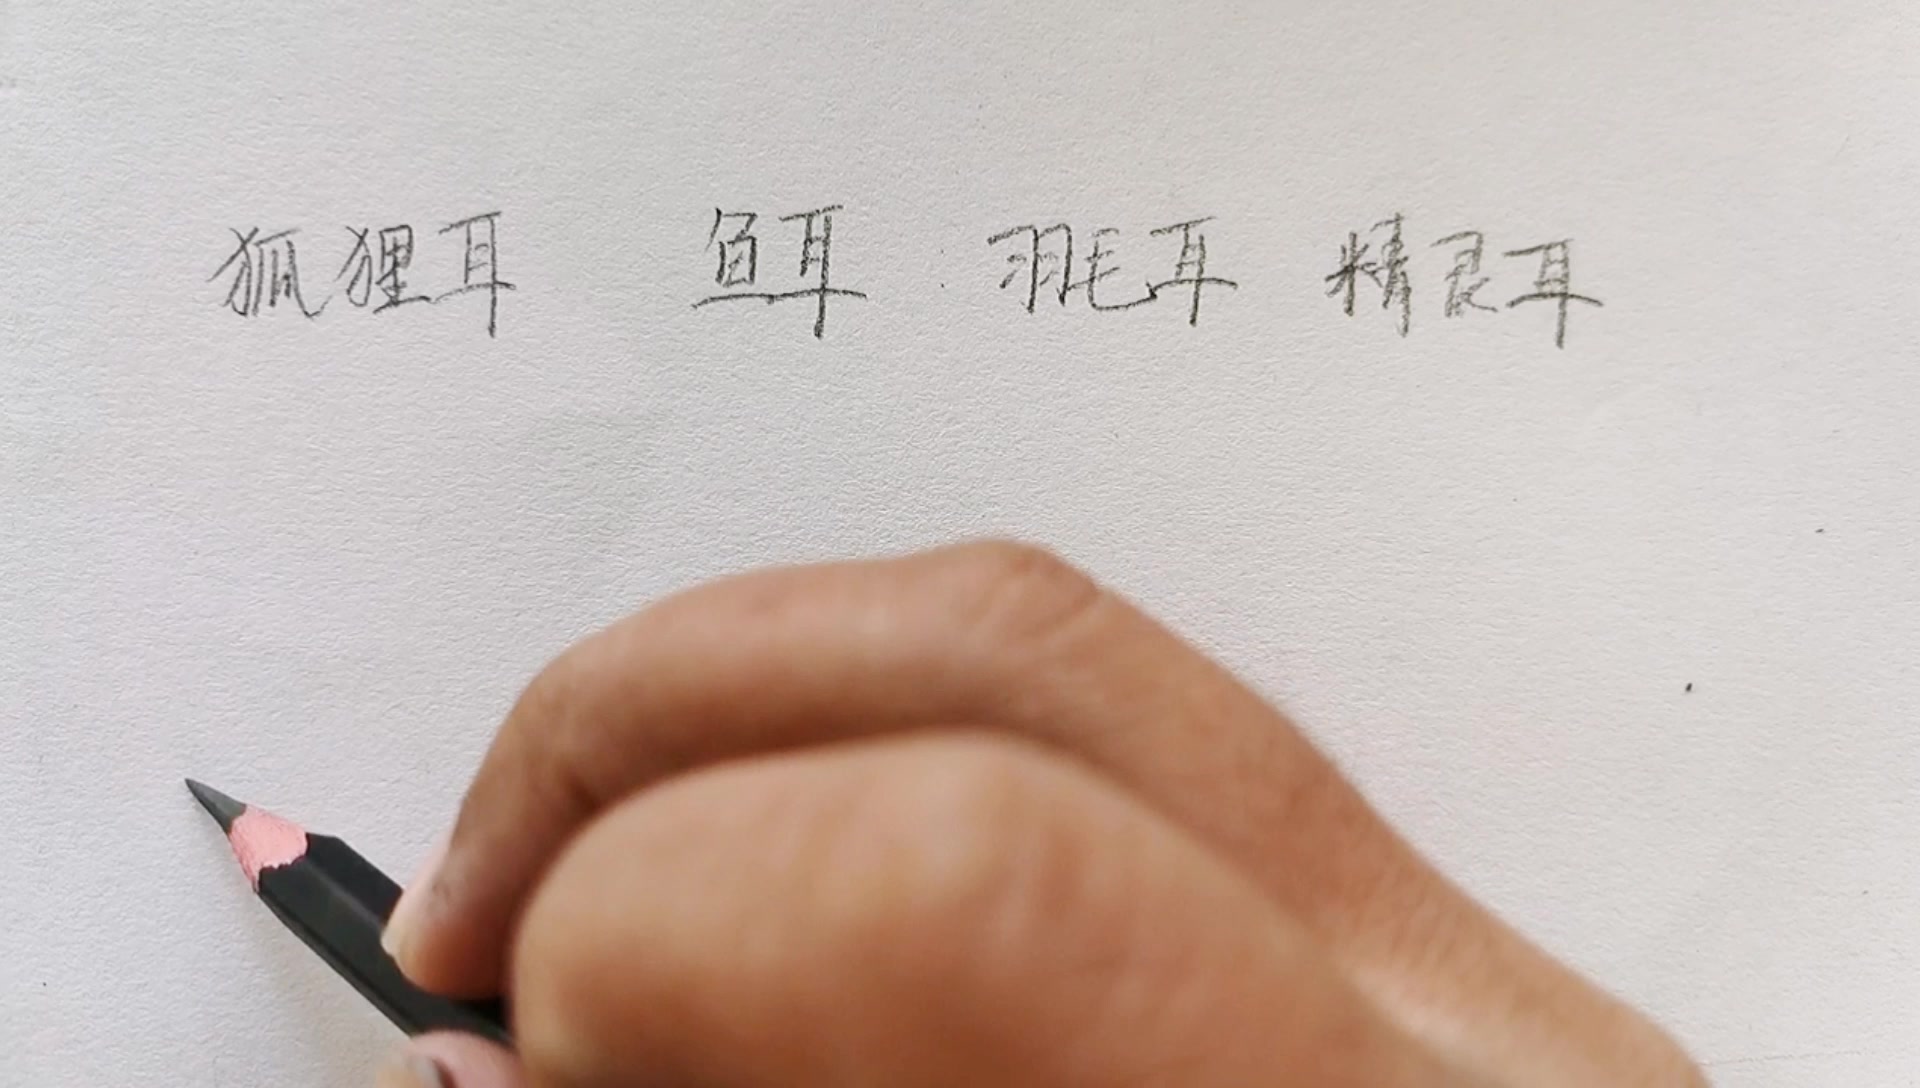 狐狸耳 鱼耳 羽毛耳 精灵耳